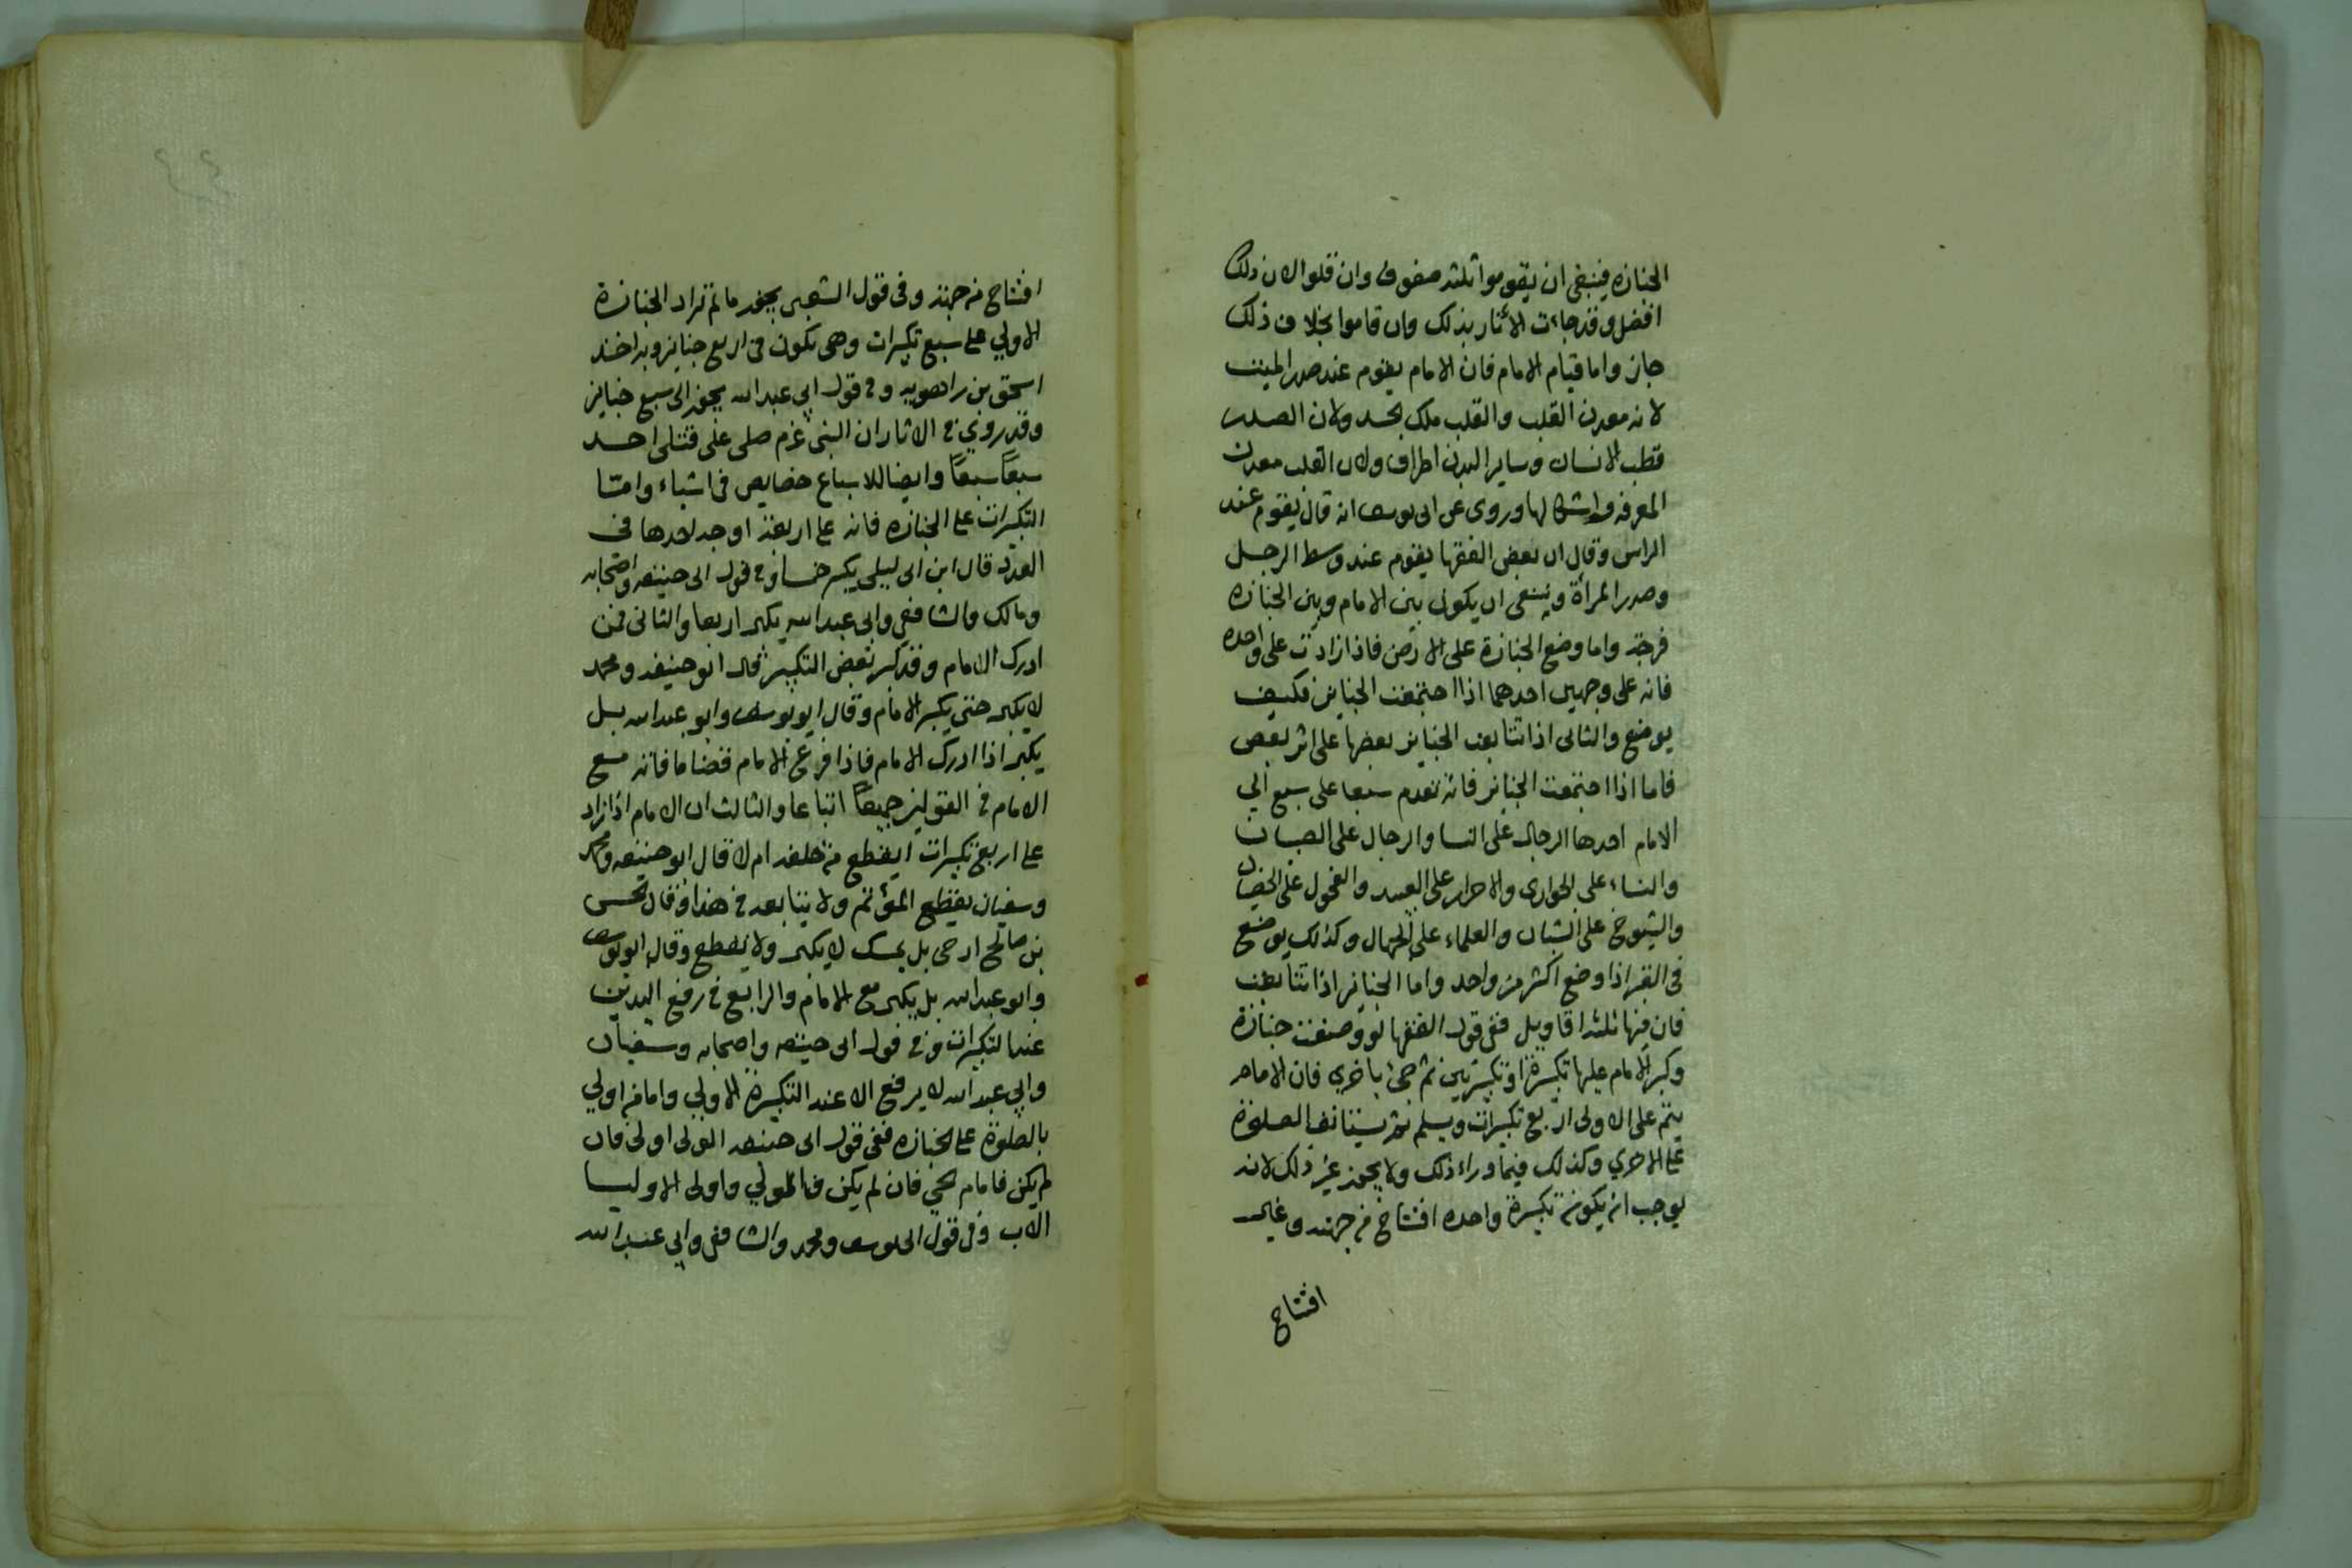 الجنازه فينبغى ان يقوموا ثلثه صفوف وان قلوا لان ذلك
افضل وقد جاءت الآثار بذلك وان قاموا بخلاف ذلك
جاز واما قيام الامام فان الامام يقوم عند صدر الميت
لانه معدن القلب والقلب ملك الجسد ولان الصدر
قطب الانسان وساير البدن اطراف ولان القلب معدن
المعرفه واشكالها وروى عن ابى يوسف انه قال يقوم عند
الراس وقال ان بعض الفقها يقوم عند وسط الرجل
وصدر المرأة وينبغى ان يكون بين الامام وبين الجنازه
فرجة واما وضع الجنازة على الارض فاذا زادت على واحده
فانه على وجهين احدهما اذا اجتمعت الجنايز فكيف
يوضع والثانى اذا تتابعت الجنايز بعضها على اثر بعض
فاما اذا اجتمعت الجنايز فانه تقدم سبعا على سبع الي
الامام احدها الرجال على النسا والرجال على الصبيان
والنساء على الجوارى والاحرار على العبيد والفحول على الخصيان
والشيوخ على الشبان والعلماء على الجهال وكذلك يوضع
فى القبر اذا وضع اكثر من واحد واما الجنايز اذا تتابعت
فان فيها ثلثه اقاويل ففى قول الفقها لو وضعت جنازة
وكبر الامام عليها تكبيرة او تكبيرتين ثم جئ باخري فان الامام
يتم على الاولى اربع تكبيرات ويسلم ثم يستانف الصلوة
على الاخري وكذلك فيما وراء ذلك ولا يجوز غير ذلك لانه
يوجب ان يكون تكبيرة واحده افتتاح من جهة وغير
افتتاح
افتتاح من جهة وفى قول الشعبى يجوز ما لم تزاد الجنازة
الاولي على سبع تكبيرات وهى تكون فى اربع جنايز وبه اخذ
اسحق بن راهويه وفى قول ابي عبد الله يجوز الى سبع جنايز
وقد روي فى الاثار ان النبى عم صلى على قتلى احد
سبعاً سبعاً وايضا للاسباع خصايص فى اشياء وامّا
التكبيرات على الجنازه فانه على اربعة اوجه احدها فى
العدد قال ابن ابى ليلى يكبر خمسا وفى قول ابى حنيفه واصحابه
ومالك والشافعي وابى عبد الله يكبر اربعا والثانى فمن
ادرك الامام وقد كبر بعض التكبير قال ابو حنيفه ومحمد
لا يكبر حتى يكبر الامام وقال ابو يوسف وابو عبد الله بل
يكبر اذا ادرك الامام فاذا فرغ الامام قضا ما فاته مع
الامام فى القولين جميعاً اتباعا والثالث ان الامام اذا زاد
على اربع تكبيرات ايقطع من خلفه ام لا قال ابو حنيفه ومحمد
وسفيان يقطع المؤتم ولا يتابعه فى هذا وقال الحسن
بن صالح ارحى بل يمسك لا يكبر ولا يقطع وقال ابو يوسف
وابو عبد الله بل يكبر مع الامام والرابع فى رفع اليدين
عند التكبيرات وفى قول ابى حنيفه واصحابه وسفيان
وابي عبد الله لا يرفع الا عند التكبيرة الاولي واما من اولي
بالصلوة على الجنازه ففى قول ابى حنيفه الولى اولى فان
لم يكن فامام الحي فان لم يكن فالمولي واولى الاوليا
الاب وفى قول ابى يوسف ومحمد والشافعى وابي عبد الله